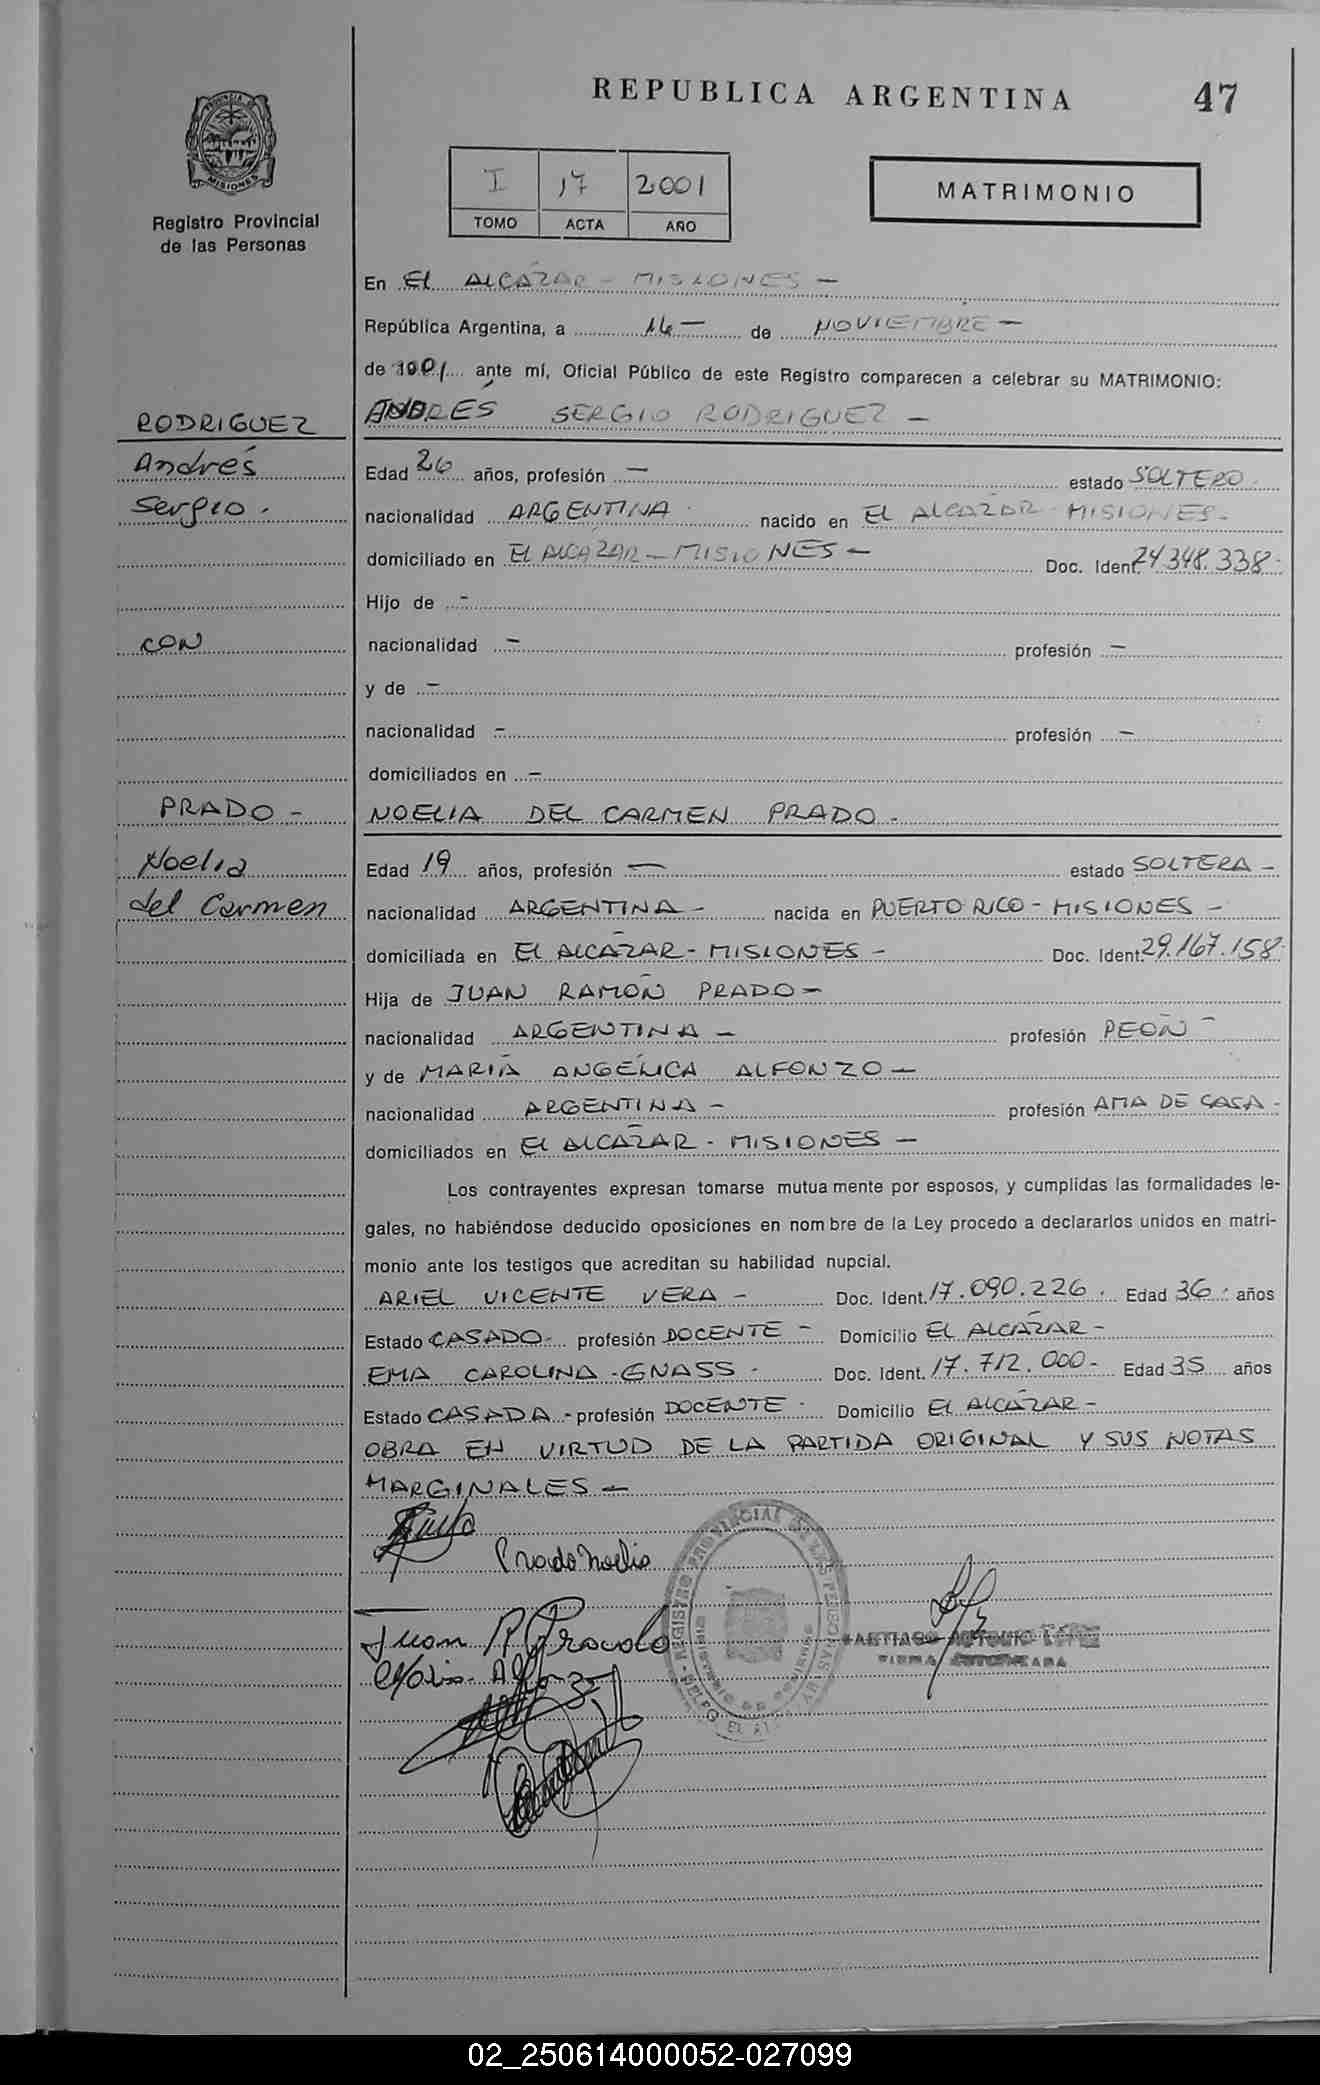 REPUBLICA ARGENTINA 47
PROVINCIA DE MISIONES
Registro Provincial
de las Personas
I 17 2001
TOMO ACTA AÑO
MATRIMONIO
En El ALCAZAR - MISIONES -
República Argentina, a 16 - de NOVIEMBRE -
de 2001 ante mí, Oficial Público de este Registro comparecen a celebrar su MATRIMONIO:
RODRIGUEZ
ANDRÉS SERGIO RODRIGUEZ -
Andrés
Edad 26 años, profesión - estado SOLTERO -
Sergio.
nacionalidad ARGENTINA nacido en EL ALCAZAR MISIONES -
domiciliado en EL ALCAZAR - MISIONES - Doc. Ident. 24.348.338 -
Hijo de -
CON
nacionalidad - profesión -
y de -
nacionalidad - profesión -
domiciliados en -
PRADO -
NOELIA DEL CARMEN PRADO -
Noelia
Edad 19 años, profesión - estado SOLTERA -
del Carmen
nacionalidad ARGENTINA - nacida en PUERTO RICO - MISIONES -
domiciliada en El ALCAZAR - MISIONES - Doc. Ident. 29.167.158 -
Hija de JUAN RAMÓN PRADO -
nacionalidad ARGENTINA - profesión PEÓN -
y de MARIA ANGÉLICA ALFONZO -
nacionalidad ARGENTINA - profesión AMA DE CASA -
domiciliados en El ALCAZAR - MISIONES -
Los contrayentes expresan tomarse mutuamente por esposos, y cumplidas las formalidades le-
gales, no habiéndose deducido oposiciones en nombre de la Ley procedo a declararlos unidos en matri-
monio ante los testigos que acreditan su habilidad nupcial.
ARIEL VICENTE VERA - Doc. Ident. 17.090.226. Edad 36 años
Estado CASADO - profesión DOCENTE - Domicilio EL ALCAZAR -
EMA CAROLINA GNASS - Doc. Ident. 17.712.000 - Edad 35 años
Estado CASADA - profesión DOCENTE - Domicilio El ALCAZAR -
OBRA EN VIRTUD DE LA PARTIDA ORIGINAL Y SUS NOTAS
MARGINALES -
Prado Noelia
Juan R Prado
SANTIAGO ANTONIO
FIRMA AUTORIZADA
REGISTRO PROVINCIAL DE LAS PERSONAS
MINISTERIO DE GOBIERNO
02_250614000052-027099